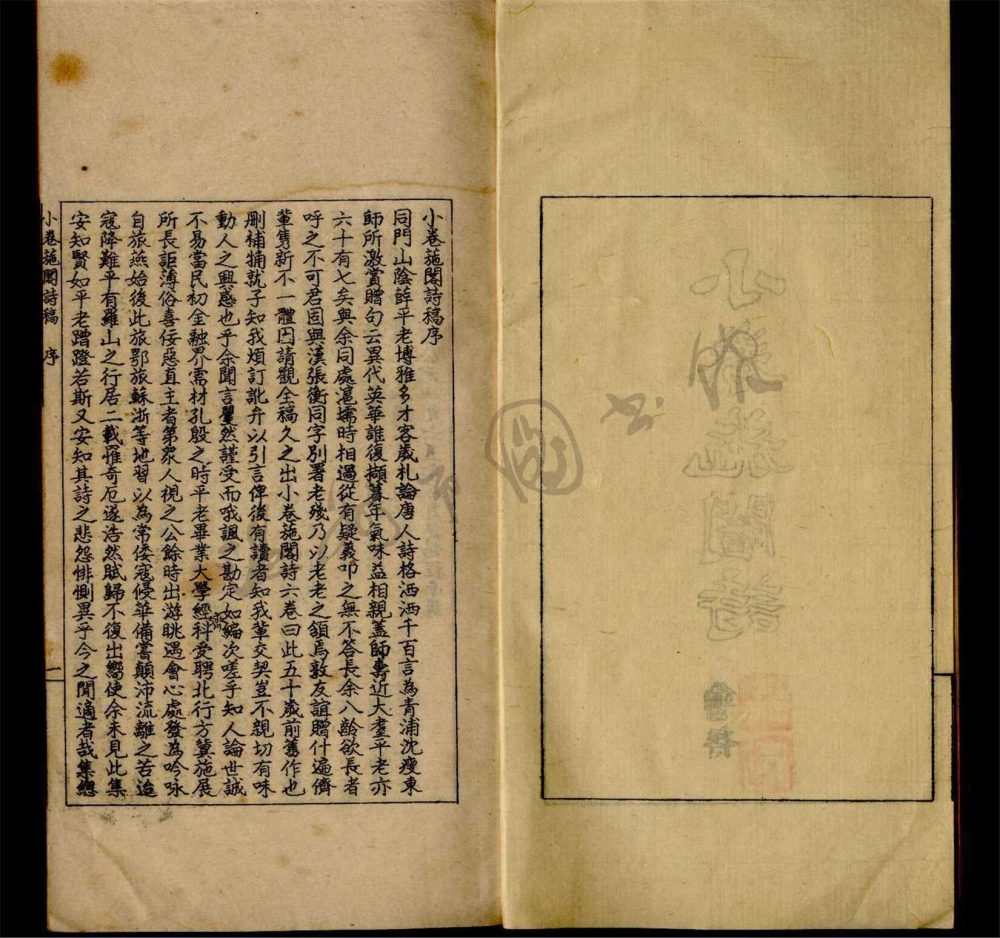 小卷葹閣詩稿序
同門山陰薛平老博雅多才客歲札論唐人詩格洒洒千百言為青浦沈瘦東
師所激賞贈句云異代英華誰復擷暮年氣味益相親蓋師壽近大耋平老亦
六十有七矣與余同處滬壖時相過從有疑義叩之無不答長余八齡欲長者
呼之不可君固與漢張衡同字別署老殘乃以老老之頷焉敦友誼贈什遍儕
輩雋新不一體因請觀全稿久之出小卷葹閣詩六卷曰此五十歲前舊作也
刪補牗就子知我煩訂訛升以引言俾後有讀者知我輩交契豈不親切有味
動人之興感也乎余聞言矍然謹受而哦諷之勘定如編次嗟乎知人論世誠
不易當民初金融界需材孔殷之時平老畢業大學經科受聘北行方冀施展
所長詎薄俗喜佞惡直主者第眾人視之公餘時出游眺遇會心處發為吟咏
自旅燕始後此旅鄂旅蘇浙等地習以為常倭寇侵華備嘗顛沛流離之苦迨
寇降難平有羅山之行居二載罹奇厄遂浩然賦歸不復出嚮使余未見此集
安知賢如平老蹭蹬若斯又安知其詩之悲怨悱惻異乎今之閒適者哉集總
小卷葹閣詩稿 序 一